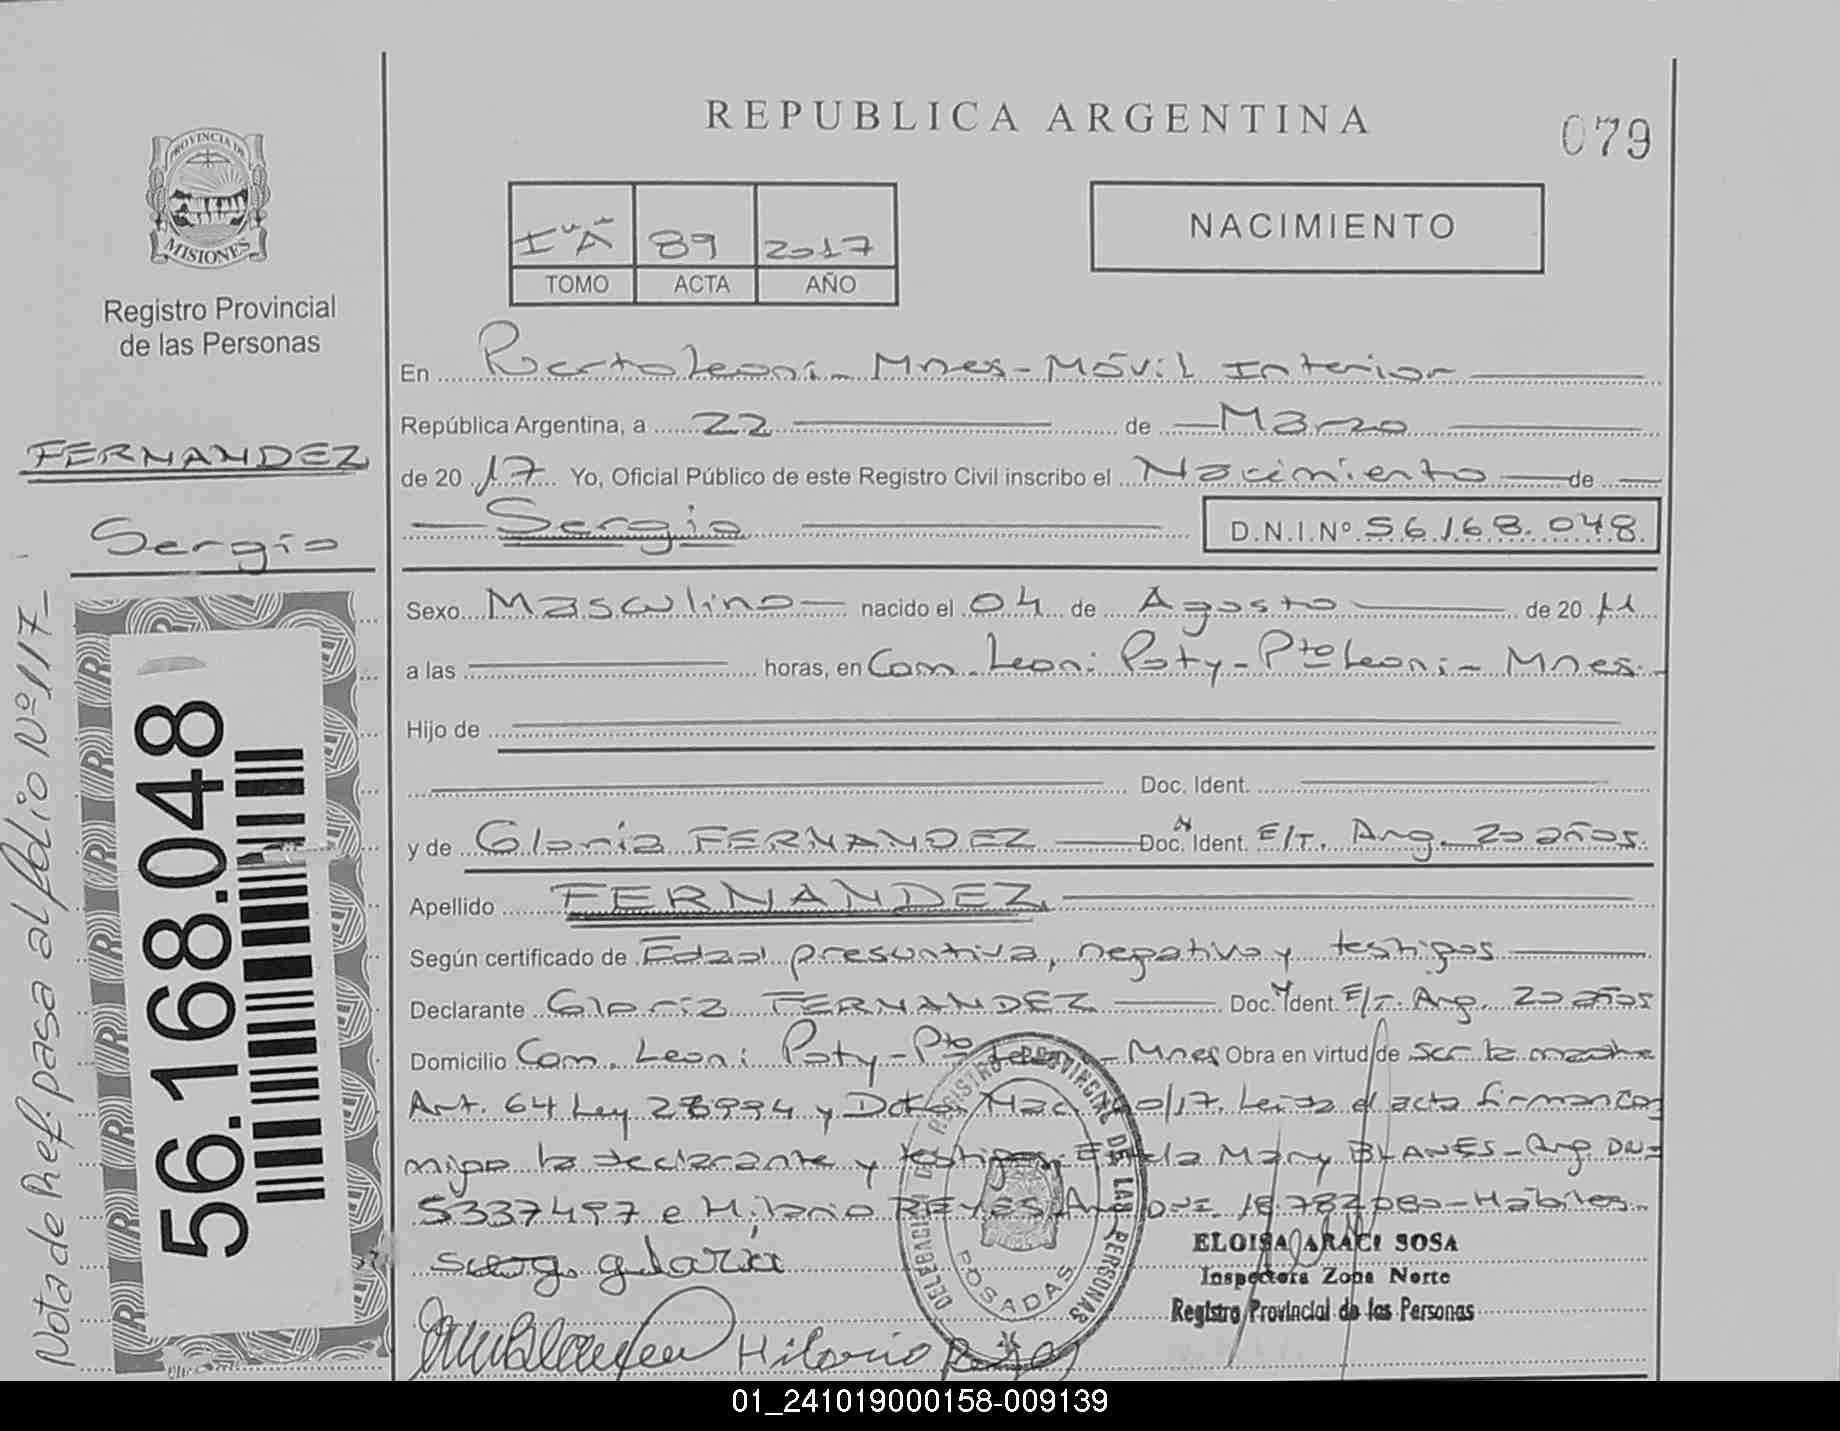 REPUBLICA ARGENTINA
079
PROVINCIA DE
MISIONES
Registro Provincial
de las Personas
FERNANDEZ
Sergio
Nota de Ref. pasa al folio Nº 117-
56.168.048
I "A" 89 2017
TOMO ACTA AÑO
NACIMIENTO
En Puerto Leoni - Mnes - Móvil Interior
República Argentina, a 22 de Marzo
de 2017 Yo, Oficial Público de este Registro Civil inscribo el Nacimiento de
Sergio D.N.I.Nº 56.168.048
Sexo Masculino nacido el 04 de Agosto de 2011
a las horas, en Com. Leoni Poty - Pto Leoni - Mnes.
Hijo de
Doc. Ident.
y de Gloria FERNANDEZ Doc. Ident. E/T. Arg. 20 años.
Apellido FERNANDEZ
Según certificado de Edad presuntiva, negativo y testigos
Declarante Gloria FERNANDEZ Doc. Ident. E/T. Arg. 20 años
Domicilio Com. Leoni Poty - Pto Leoni - Mnes Obra en virtud de ser la madre
Art. 64 Ley 26994 y /17. Leida el acta firman con
migo la declarante y testigos: Mary BLANES - Arg. DNI
5337497 e Hilario REYES DNI 18.782.080 - Hábiles.
gloria
Hilario
DELEGACION DEL REGISTRO PROVINCIAL DE LAS PERSONAS
POSADAS
ELOISA ARACI SOSA
Inspectora Zona Norte
Registro Provincial de las Personas
01_241019000158-009139